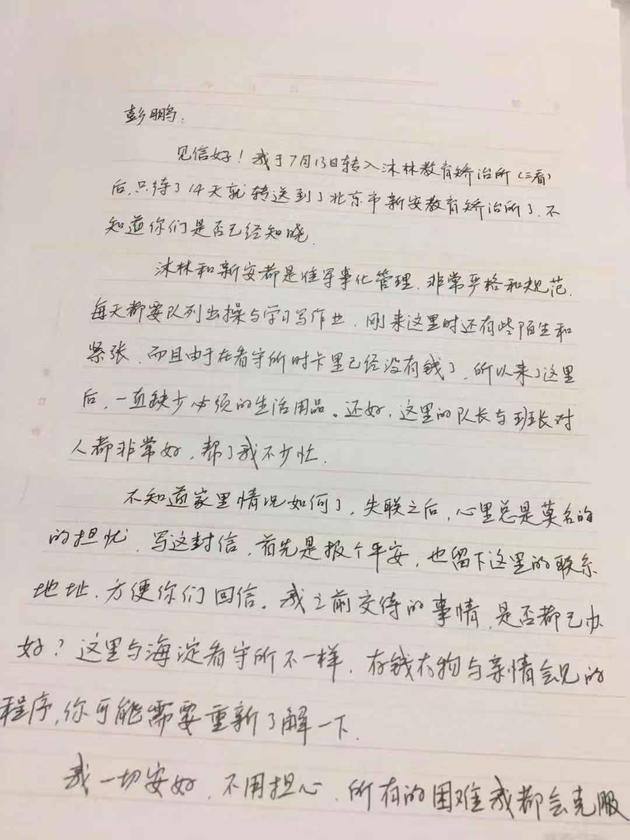 彭鹏:
见信好!我于7月13日转入沐林教育矫治所(三看)
后,只待了14天就转送到了北京市新安教育矫治所了.不
知道你们是否已经知晓.
沐林和新安都是准军事化管理.非常严格和规范.
每天都要队列出操与学习写作业.刚来这里时还有些陌生和
紧张.而且由于在看守所时卡里已经没有钱了.所以来了这里
后,一直缺少必须的生活用品。还好,这里的队长与班长对
人都非常好,帮了我不少忙.
不知道家里情况如何了,失联之后,心里总是莫名的
的担忧.写这封信,首先是报个平安,也留下这里的联系
地址.方便你们回信。我之前交待的事情,是否都已办
好?这里与海淀看守所不一样.存钱存物与亲情会见的
程序,你可能需要重新了解一下.
我一切安好.不用担心.所有的困难我都会克服